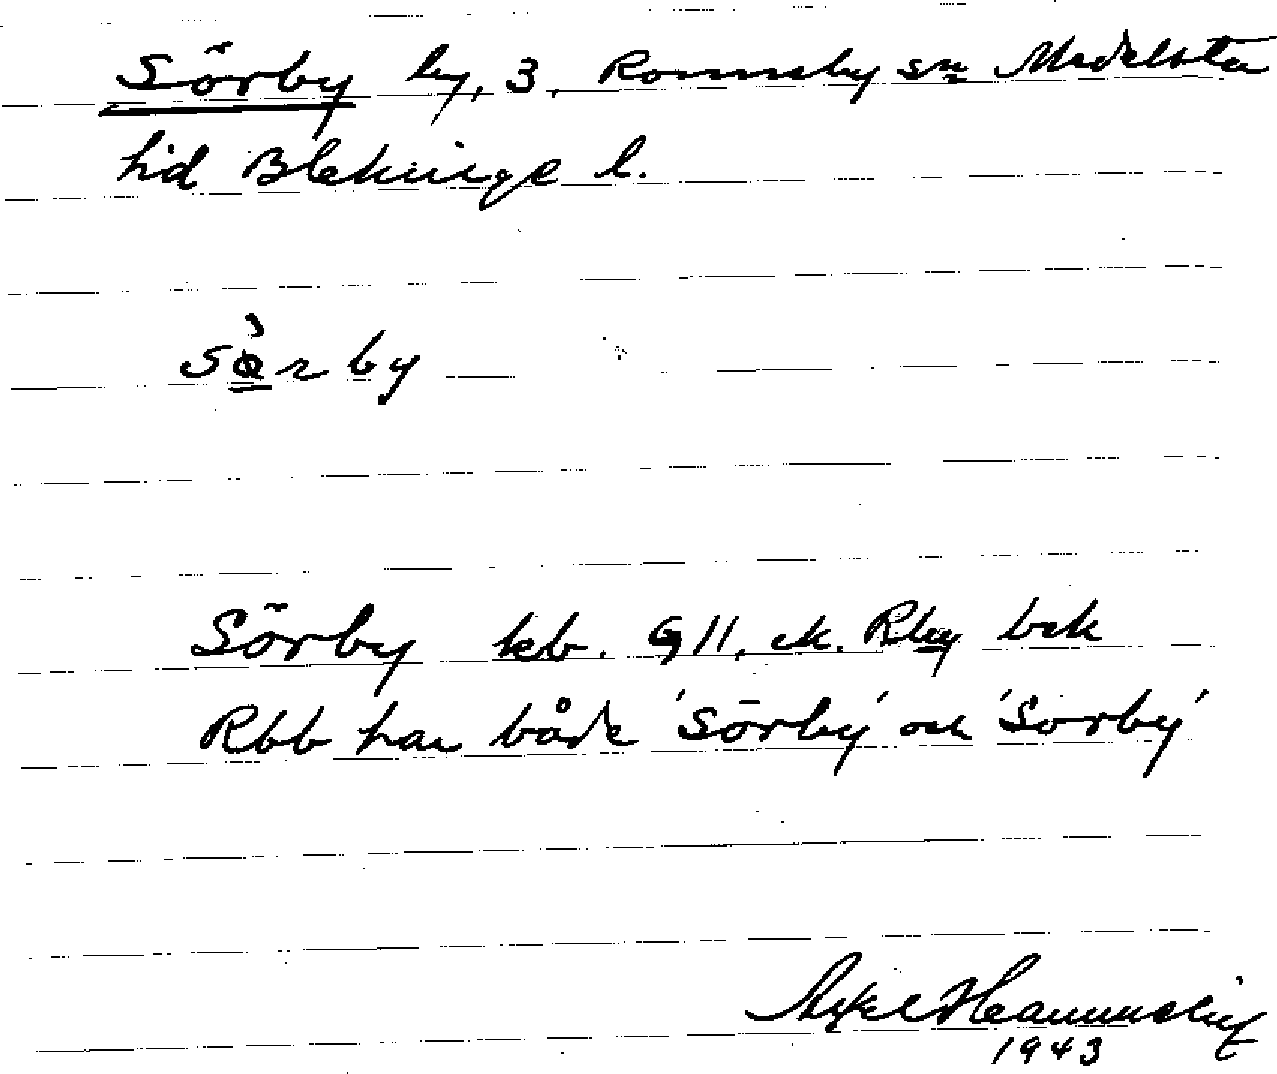 Sörby by, 3, Ronneby sn Medelsta
hd Blekinge l.
Sörby kb. G11, ek. Rby bek
Rbb har både 'Sörby' och 'Sorby'
Axel
1943